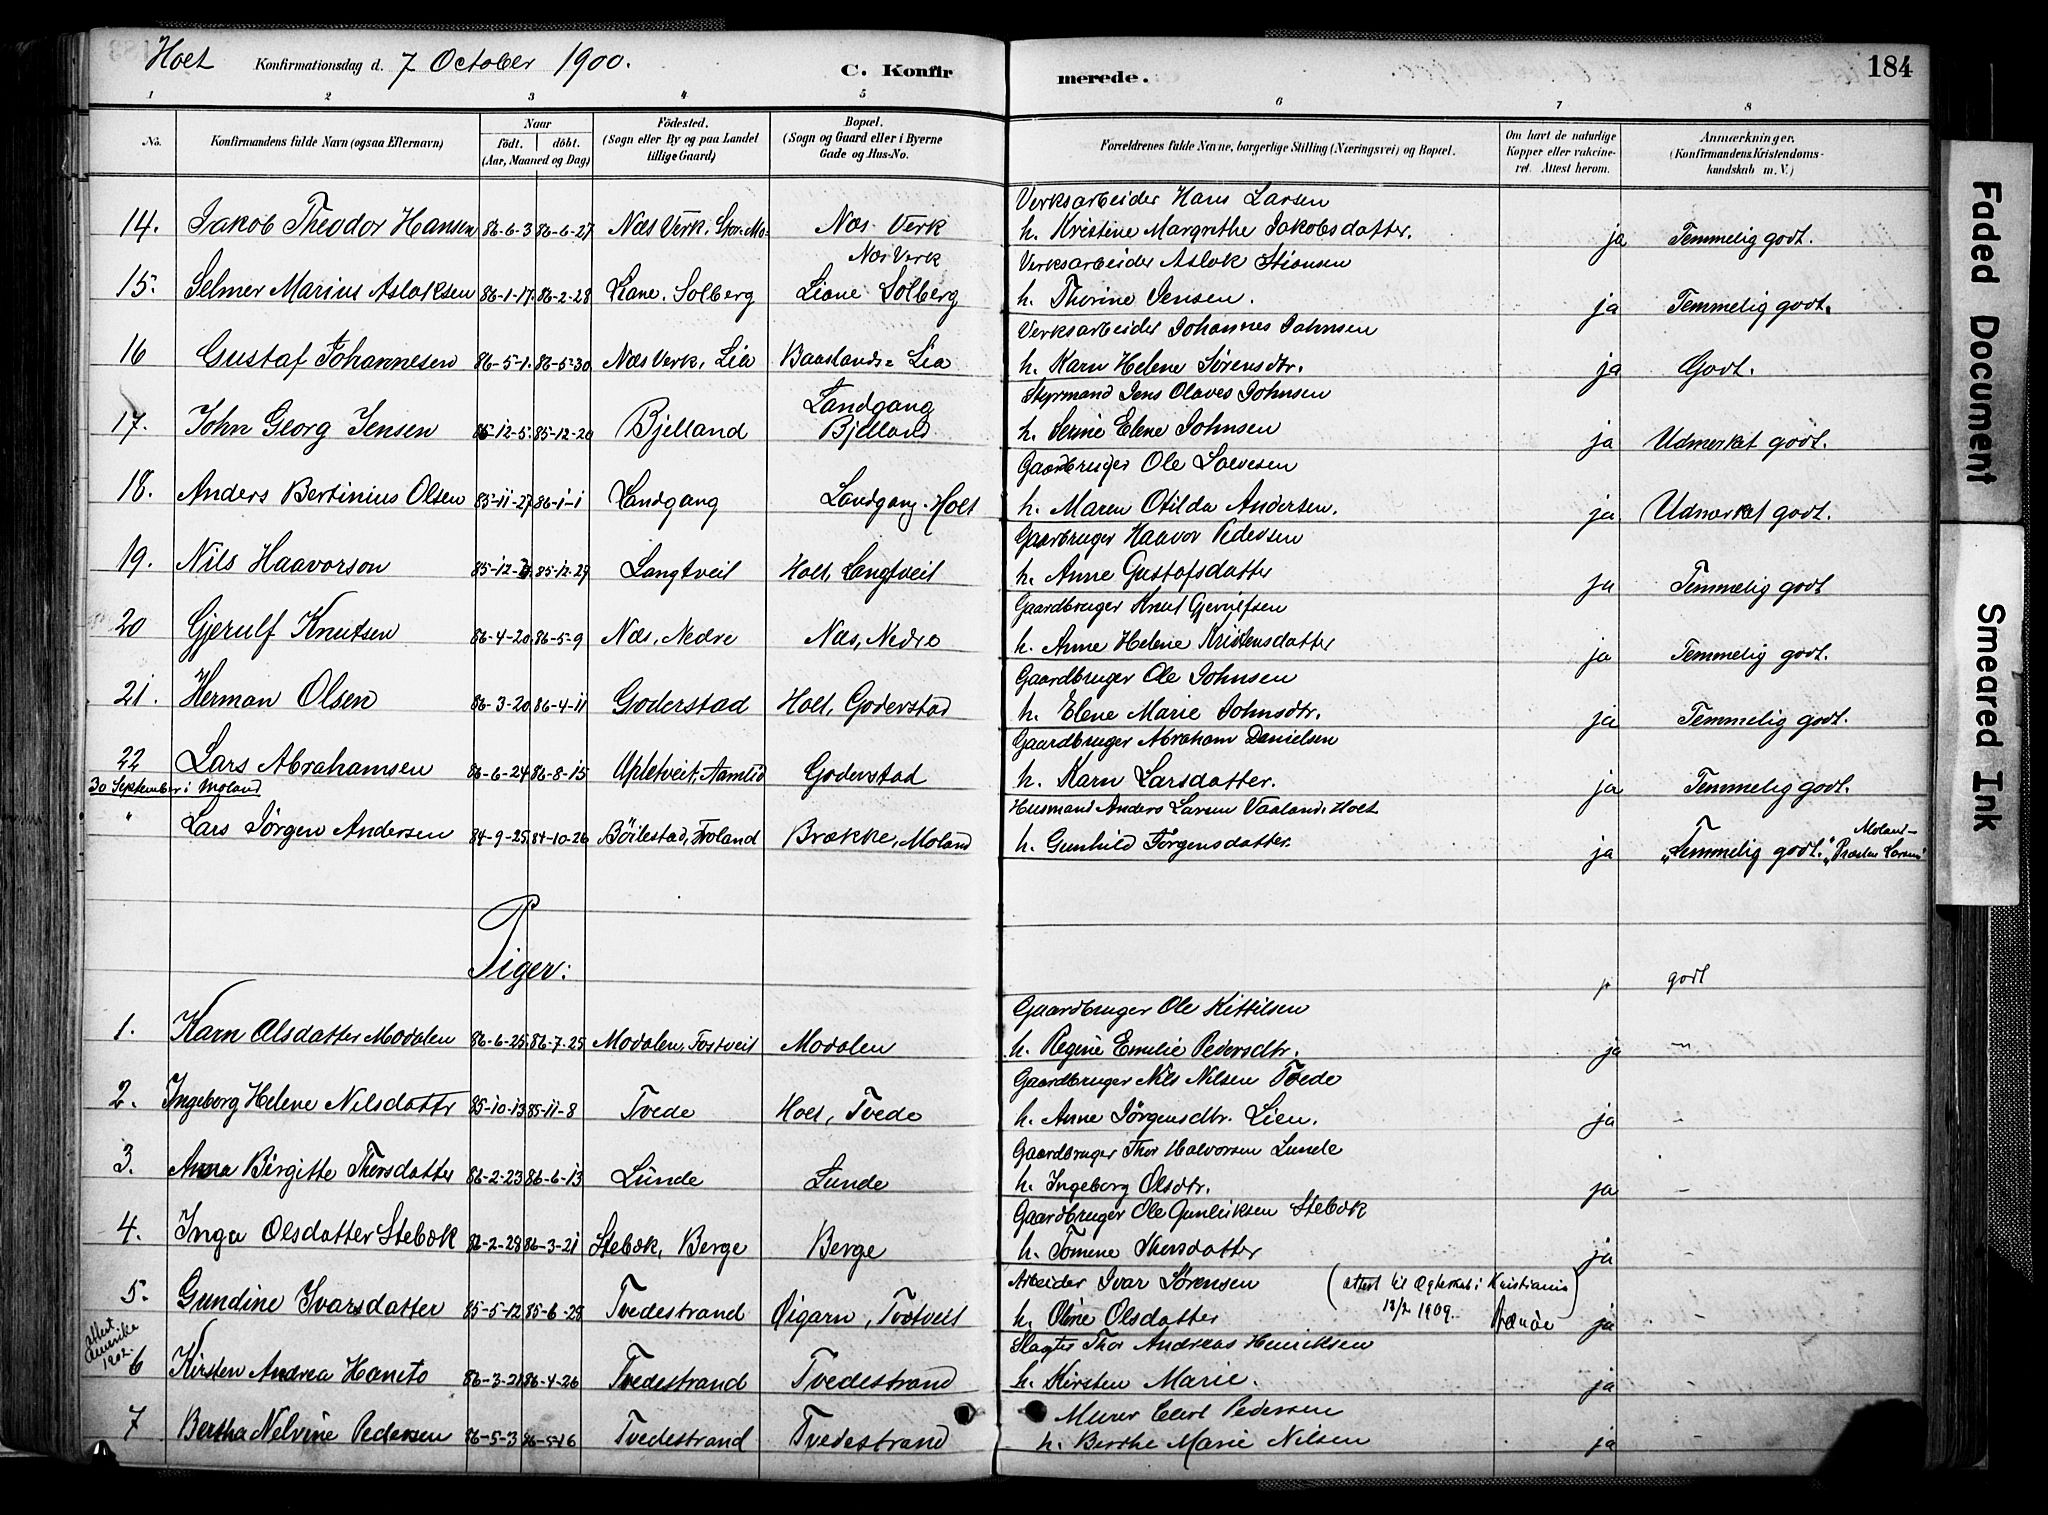 Holt Konfirmationsdag d. 7 October 1900. C. Konfirmerede. 184
1 2 3 4 5 6 7 8
No. Konfirmandens fulde Navn (ogsaa Efternavn) Naar født. døbt. (Aar, Maaned og Dag) Fødested. (Sogn eller By og paa Landet tillige Gaard) Bopæl. (Sogn og Gaard eller i Byerne Gade og Hus-No. Forældrenes fulde Navne, borgerlige Stilling (Næringsvei) og Bopæl. Om havt de naturlige Kopper eller vakcineret. Attest herom. Anmærkninger. (Konfirmandens Kristendomskundskab m. V.)
Verksarbeider Hans Larsen
14. Jakob Theodor Hansen 86-6-3 86-6-27 Næs Verk. Stor-Mo- Næs Verk h. Kristine Margrethe Jakobsdatter. ja Temmelig godt.
Næs Verk Verksarbeider Aslak Stiansen
15. Selmer Marius Aslaksen 86-1-17 86-2-28 Liane. Solberg Liane Solberg h. Thorine Jensen. ja Temmelig godt.
Verksarbeider Johannes Johnsen
16 Gustaf Johannesen 86-5-1. 86-5-30 Næs Verk, Lia Baaslands- Lia h. Karn Helene Sørensdtr. ja Godt.
Landgang Styrmand Jens Olaves Johnsen
17. John Georg Jensen 85-12-5. 85-12-20 Bjelland Bjelland h. Serine Elene Johnsen ja Udmerket godt.
Gaardbruger Ole Larsen
18. Anders Bertinius Olsen 85-11-27 86-1-1 Landgang Landgang. Holt h. Maren Otilda Andersen. ja Udmerket godt.
Gaarbruger Haavor Pedersen
19. Nils Haavorson 85-12-3 85-12-29 Langtveil Holt, Langtveil h. Anne Gustafsdatter ja Temmelig godt
Gaardbruger Knut Gjerulfsen
20 Gjerulf Knutsen 86-4-20 86-5-9 Næs, Nedre Næs, Nedre h. Anne Helene Kristensdatter ja Temmelig godt.
Gaardbruger Ole Johnsen
21. Herman Olsen 86-3-20 86-4-11 Goderstad Holt, Goderstad h. Elene Marie Johnsdtr. ja Temmelig godt.
Gaardbruger Abraham Danielsen
22 Lars Abrahamsen 86-6-24 86-8-15 Upletveit, Aamlid Goderstad h. Karn Larsdatter. ja Temmelig godt.
30 September i Moland Husmand Anders Larsen Vaaland, Holt
" Lars Jørgen Andersen 84-9-25 84-10-26 Bøilestad, Froland Brække, Moland h. Gunhild Jørgensdatter. ja "Temmelig godt." Moland-
Piger:
godt
Gaardbruger Ole Kittilsen
1. Karn Olsdatter Modalen 86-6-25 86-7-25 Modalen, Fostveit Modalen h. Regine Emilie Pedersdtr. ja
Gaardbruger Nils Nilsen Tvede
2. Ingeborg Helene Nilsdatter 85-10-13 85-11-8 Tvede Holt, Tvede h. Anne Jørgensdtr. Lien. ja -
Gaardbruger Thor Halvorsen Lunde
3. Anna Birgitte Thorsdatter 86-2-23 86-6-13 Lunde Lunde h. Ingeborg Olsdtr. ja -
Gaardbruger Ole Gunleiksen Stebæk
4. Inga Olsdatter Stebæk 86-2-28 86-3-21 Stebæk, Berge Berge h. Tomene Thersdatter ja -
Arbeider Ivar Sørensen (attest til Ægteskab i Kristiania 18/2 1909.
5. Gundine Ivarsdatter 85-5-12 85-6-28 Tvedestrand Øigarn, Tvetveit h. Oline Olsdatter ja -
attest Amerika 1902. Slagter Thor Andreas Henriksen
6 Kirsten Andrea Haneto 86-3-21 86-4-26 Tvedestrand Tvedestrand h. Kirsten Marie. ja -
Murer Elert Pedersen
7 Bertha Nelvine Pedersen 86-5-3 86-5-16 Tvedestrand Tvedestrand h. Berthe Marie Nilsen ja -
Faded Document
Smeared Ink